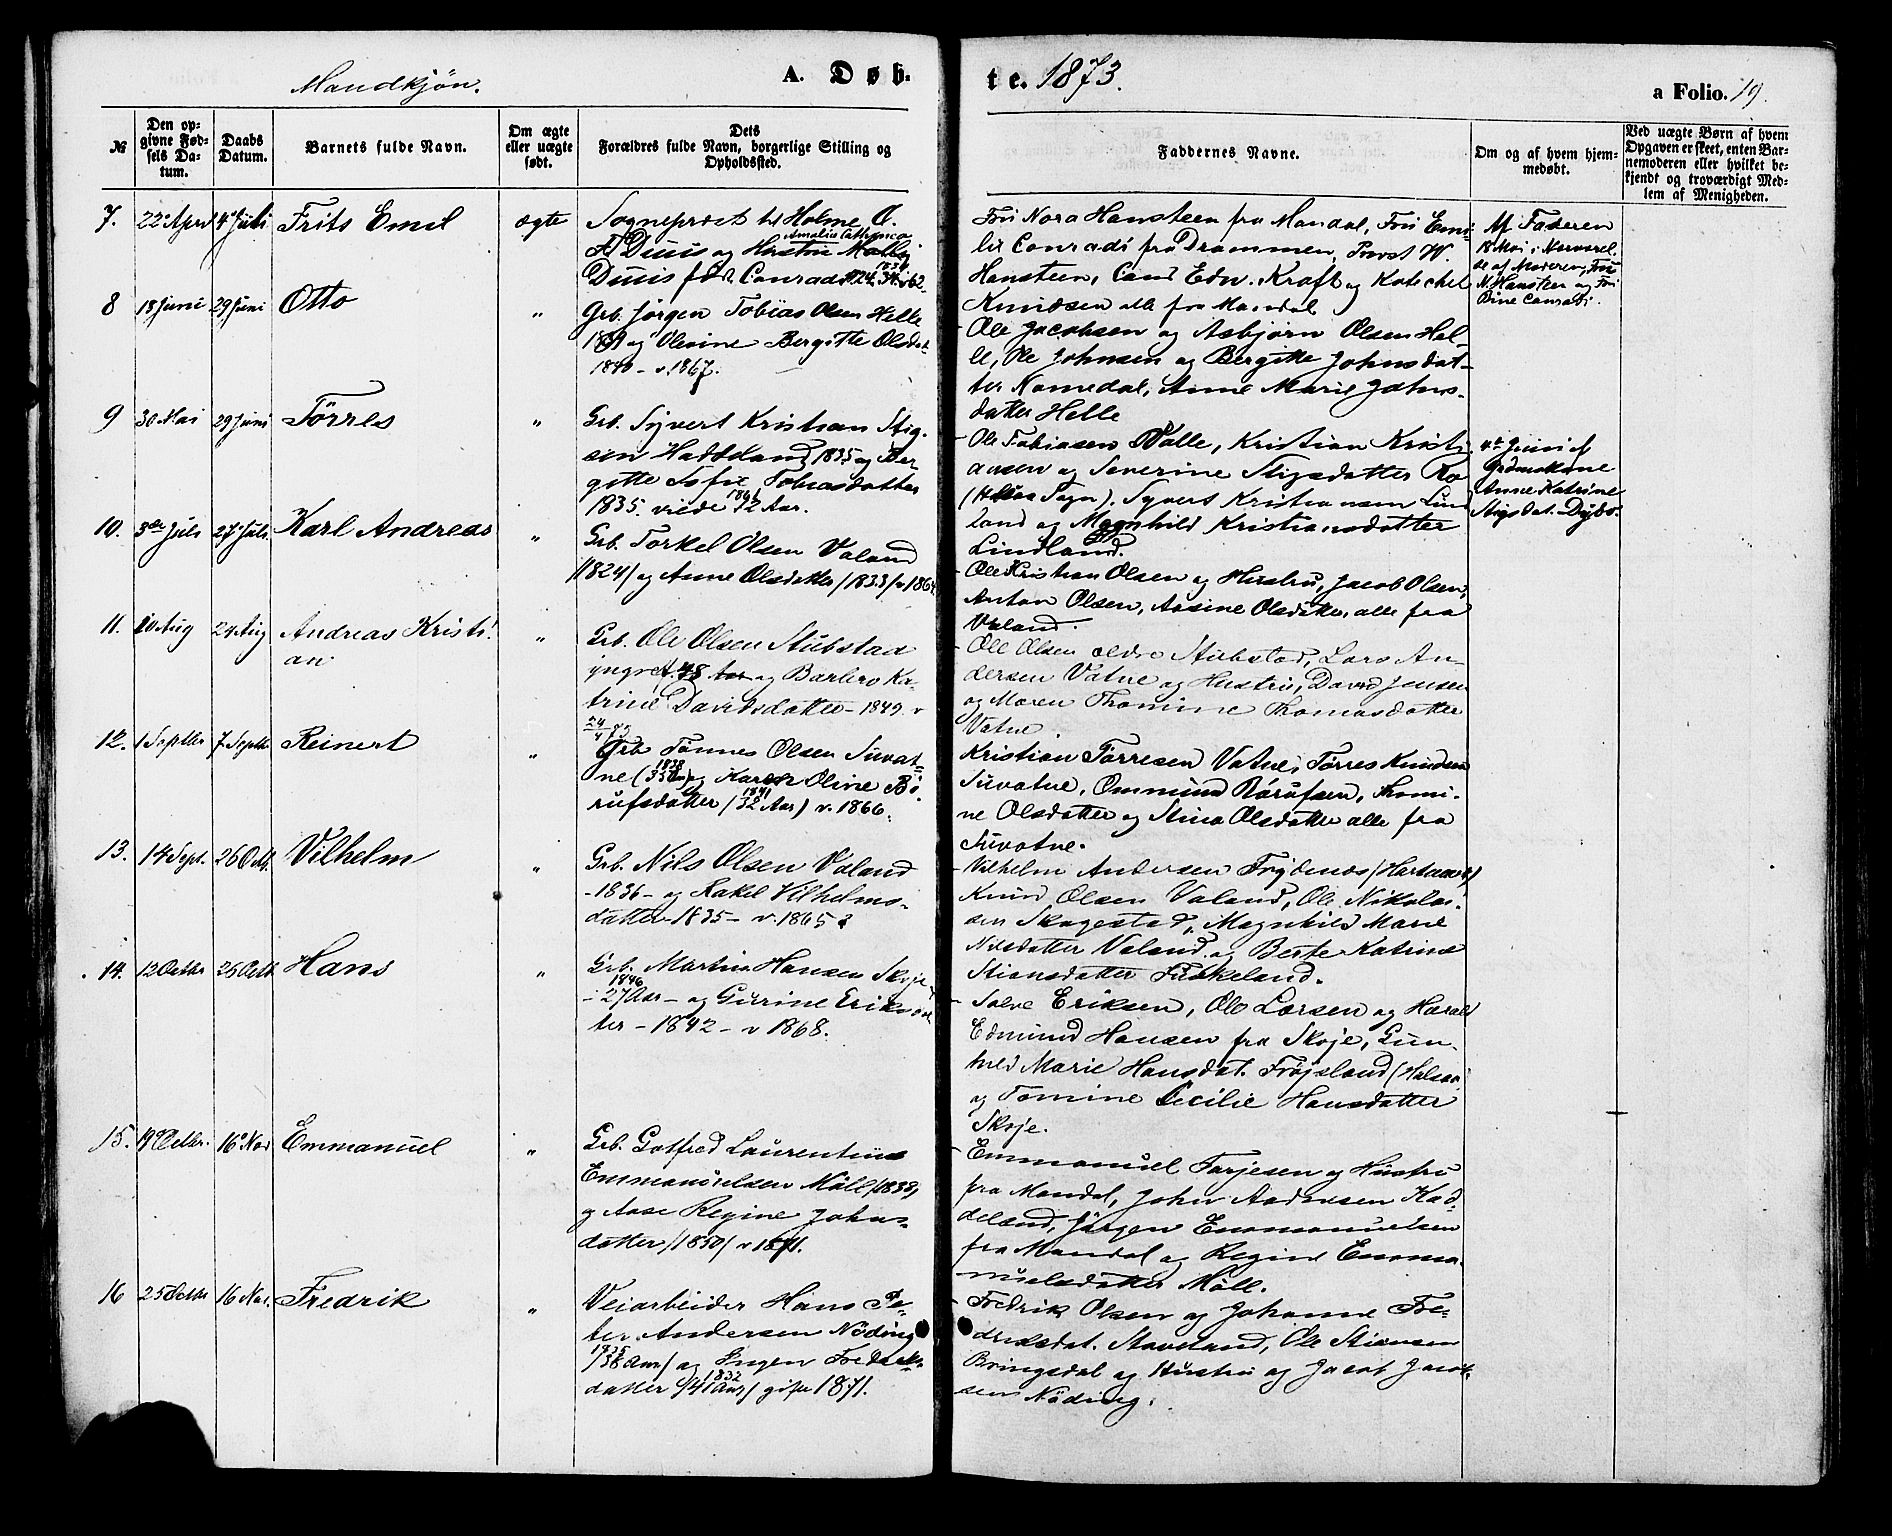 Mandkjön.
A. Døb-
te. 1873.
a Folio. 19.
№
Den opgivne Fødsels Datum.
Daabs Datum.
Barnets fulde Navn.
Om ægte eller uægte født.
Dets Forældres fulde Navn, borgerlige Stilling og Opholdssted.
Faddernes Navne.
Om og af hvem hjemmedøbt.
Ved uægte Børn af hvem Opgaven er skeet, enten Barnemoderen eller hvilket bekjendt og troværdigt Medlem af Menigheden.
7. 22 April 4 Juli Frits Emil ægte
Sognepræst til Holme C.
Amalia Cathinca
Duus og Hustru
Duus fød. Conradi 1824
Fru Nora Hansteen fra Mandal, Fru Emi-
lie Conradi fra Drammen, Provst W.
Hansteen, Cand Edv. Kraft og Kateket
Knudsen alle fra Mandal
Af Faderen
18 Mai i Nærværel-
se af Moderen, Fru
N. Hansteen og Fru
Conradi.
8 18 Juni 29 Juni Otto "
Grb. Jørgen Tobias Olsen Helle
og Olevine Bergitte Olsdat-
1840 - v. 1867.
Ole Jacobsen og Asbjørn Olsen Hel-
le, Ole Johnsen og Bergitte Johnsdat-
ter Nomedal, Anne Marie Johns-
datter Helle
9 30 Mai 29 Juni Törres "
Grb. Syvert Kristian Stig-
sen Haddeland 1835 og Ber-
gitte Sofie Tobiasdatter
1835. viede
Ole Tobiasen Valle, Kristian Kristi-
ansen og Severine Stigsdatter Ro
(Halsaa Sogn), Syvert Kristiansen Lind
land og Magnhild Kristiansdatter
Lindland.
4de Juni af
Grdmdkone
Anne Katrine
Stigsdat. Dybo.
10. 3die Juli 27 Juli Karl Andreas "
Grb. Torkel Olsen Valand
(1824) og Anne Olsdatter (1833) v. 1864
Ole Kristian Olsen og Hustru, Jacob Olsen,
Anton Olsen, Aasine Olsdatter, alle fra
Valand.
11. 10 Aug 24 Aug Andreas Kristi-
an "
Grb. Ole Olsen Stubstad
yngre f. 48 og Barbro Ka-
trine Davidsdatter - 1849. v
24/4 73
Ole Olsen ældre Stubstad, Lars An-
dersen Vatne og Hustru, David Jensen
og Maren Thomine Thomasdatter
Vatne.
12. 1 Septbr 7 Septbr Reinert "
Grb Tønnes Olsen Suvat-
1838
ne (35 Aar) og Karen Oline Bö-
1841
rufsdatter (32 Aar) v. 1866.
Kristian Törresen Vatne, Törres Knudsen
Suvatne, Ommund Börufsen, Thomi-
ne Olsdatter og Stina Olsdatter alle fra
Suvatne.
13. 14 Sept. 26 Octb. Vilhelm "
Grb. Nils Olsen Valand
- 1836 - og Rakel Vilhelms-
datter - 1835 - v. 1865
Vilhelm Andersen Frydenøs (
Knud Olsen Valand, Ole Nikolai-
sen Skagestad, Magnhild Marie
Nilsdatter Valand og Berte Katrine
Stiansdatter Fuskeland.
14. 12 Octbr 26 Octb. Hans "
Grb. Martin Hansen Skoje
1846
- 27 Aar - og Gurine Eriksdat
ter - 1842 - v 1868.
Salve Eriksen, Ole Larsen og Harald
Edmund Hansen fra Skoje, Gun-
hild Marie Hansdat. Fröjsland (Halsaa)
og Tomine Cecilie Hansdatter
Skoje.
15. 19 Octbr. 16 Nov Emmanuel "
Grb. Gotfred Laurentius
Emmanuelsen Möll (1838)
og Aase Regine Johns-
datter (1850) v 1871.
Emmanuel Tarjesen og Hustru
fra Mandal, John Andersen Had-
deland, Jörgen Emmanuelsen
fra Mandal og Regine Emma-
nuelsdatter Möll.
16 25 Octbr 16 Nov. Fredrik "
Veiarbeider Hans Pe-
ter Andersen Nöding
1835
(38 Aar) og Ingen Fredriks-
1832
datter (41 Aar) gift 1871.
Fredrik Olsen og Johanne Fre-
driksdat. Staveland, Ole Stiansen
Bringsdal og Hustru og Jacob Jacob-
sen Nöding.